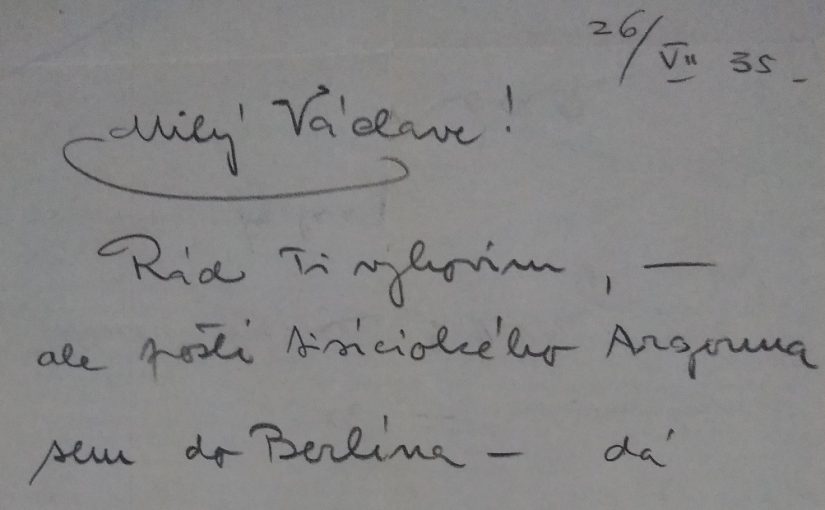 26/VII 35 -
Milý Václave!
Rád Ti vyhovím, —
ale pošli tisíciokého Argonna
sem do Berlína - dá